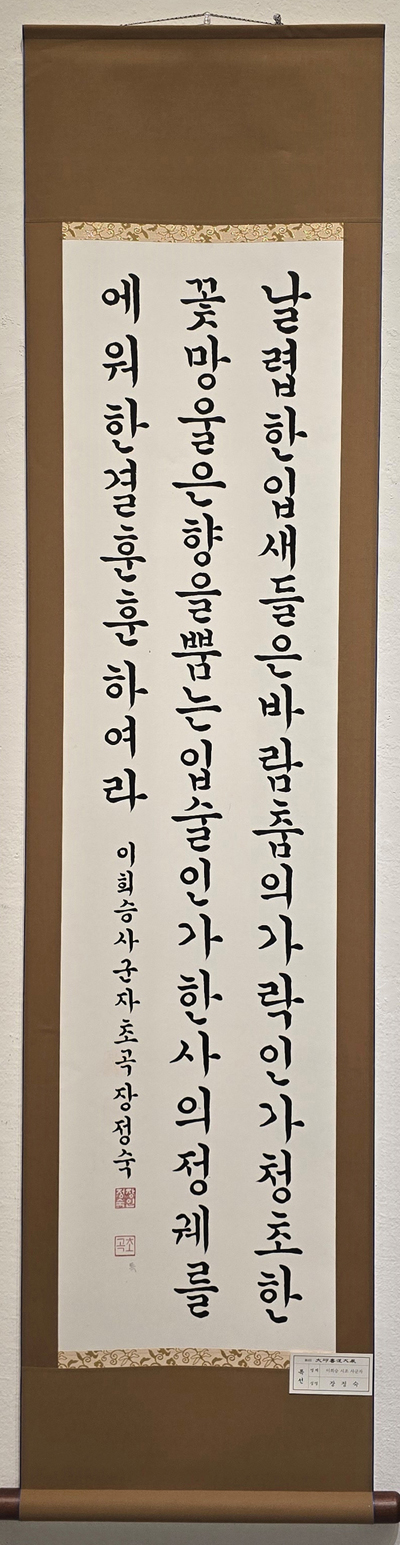 날렵한입새들은바람춤의가락인가청초한
꽃망울은향을뿜는입술인가한사의정궤를
에워한결훈훈하여라 이희승사군자초곡장정숙
초곡
장정숙